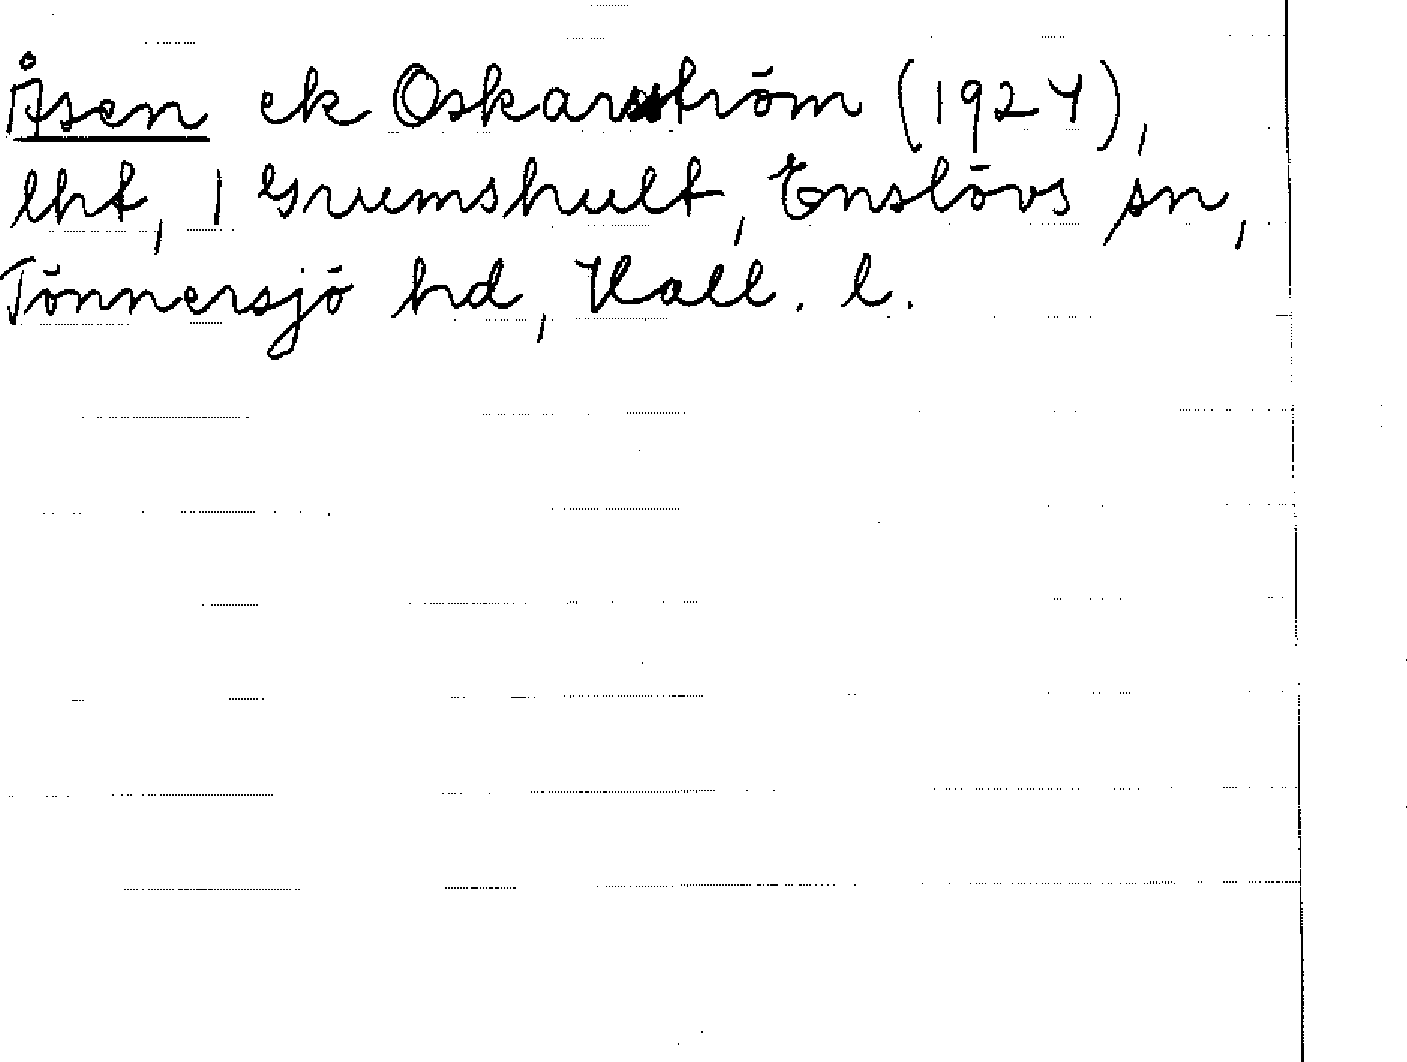 Åsen ek Oskarström (1924),
lht, 1 Grumshult, Enslövs sn,
Tönnersjö hd, Hall. l.